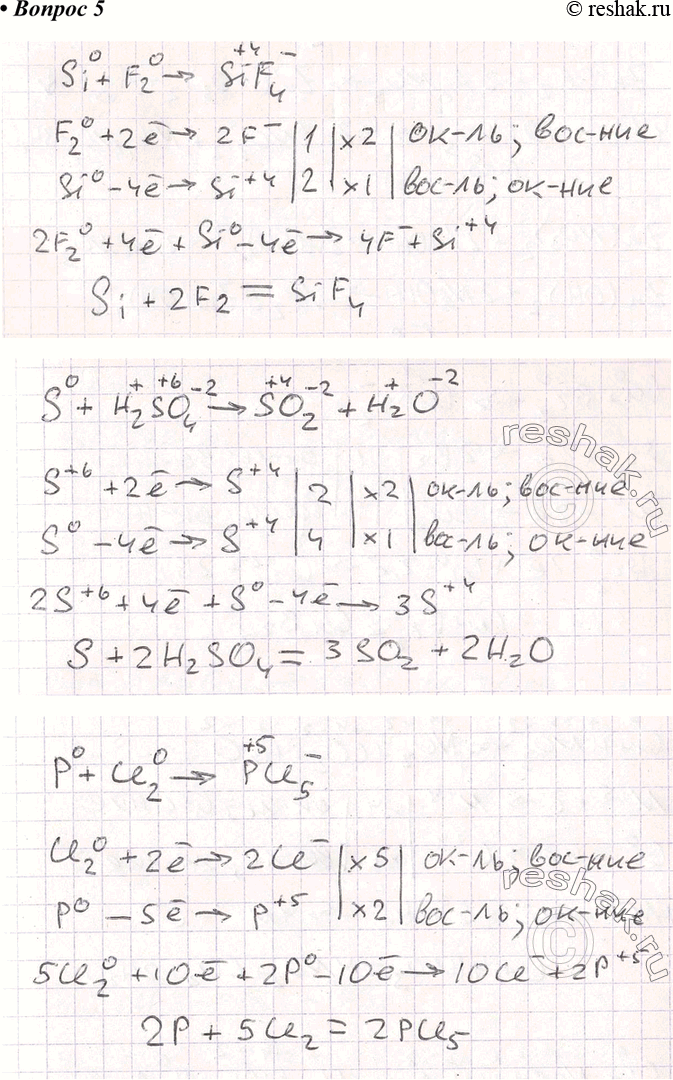 • Вопрос 5
© reshak.ru
Si⁰ + F₂⁰ → Si⁺⁴F₄⁻
F₂⁰ + 2ē → 2F⁻ | 1 | x2 | ок-ль; вос-ние
Si⁰ - 4ē → Si⁺⁴ | 2 | x1 | вос-ль; ок-ние
2F₂⁰ + 4ē + Si⁰ - 4ē → 4F⁻ + Si⁺⁴
Si + 2F₂ = SiF₄
S⁰ + H₂⁺S⁺⁶O₄⁻² → S⁺⁴O₂⁻² + H₂⁺O⁻²
S⁺⁶ + 2ē → S⁺⁴ | 2 | x2 | ок-ль; вос-ние
S⁰ - 4ē → S⁺⁴ | 4 | x1 | вос-ль; ок-ние
2S⁺⁶ + 4ē + S⁰ - 4ē → 3S⁺⁴
S + 2H₂SO₄ = 3SO₂ + 2H₂O
P⁰ + Cl₂⁰ → P⁺⁵Cl₅⁻
Cl₂⁰ + 2ē → 2Cl⁻ | x5 | ок-ль; вос-ние
P⁰ - 5ē → P⁺⁵ | x2 | вос-ль; ок-ние
5Cl₂⁰ + 10ē + 2P⁰ - 10ē → 10Cl⁻ + 2P⁺⁵
2P + 5Cl₂ = 2PCl₅
reshak.ru
©
reshak.ru
©